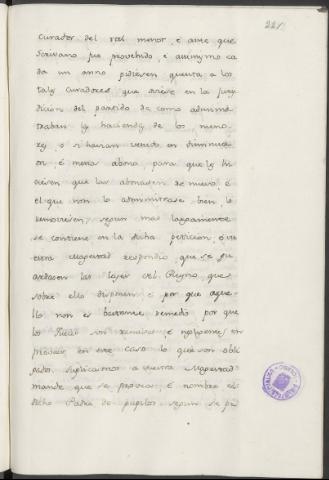 221
curador del tal menor, é ante que
Escrivano fue provehido, é assimysmo ca
da un anno pidiesen quenta a los
tales Curadores que oviere en la jure
dicion del partido de como adminis
traban las haciendas de los meno
res, o si havian venido en diminucio
on ó menos abono para que les hi
ciesen que las abonasen de nuevo, é
el que non lo administrase bien lo
removiesen, segun mas largamente
se contiene en la dicha peticion, é vu
estra Magestad respondio que se gu
ardasen las leyes del Reyno que
sobre ello disponen é por que aque
llo non es bastante remedio por que
los Jueces son remisos, é nigligentes en
proveer en este caso lo que son obli
gados. Suplicamos a vuestra Magestad
mande que se provea é nombre el
dicho Padre de pupilos segun se pi